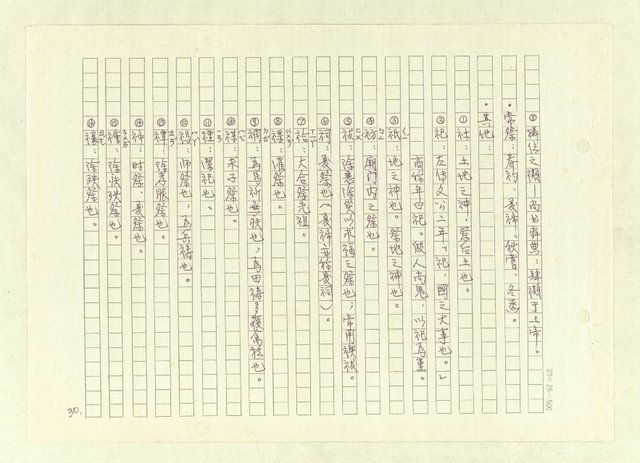 ⑤ 攝位之類—尚書舜典:肆類于上帝。
•常祭:春礿、夏禘、秋嘗、冬烝。
•其他:
①社:土地之神,祭后土也。
②祀:左傳文公二年「祀,國之大事也。」
商代年曰祀。殷人尚鬼,以祀為重。
③祇:地之神也。祭地之神也。
④祊:廟門內之祭也。
⑤祓:除惡除災以求福之祭也,常用祓。
⑥祠:春祭也。
⑦祫:大合祭先祖。
⑧祼:灌祭也。
⑨禂:為馬祈無疾也,為田禱多獲禽牲也。
⑩禖:求子祭也。
⑪禋:潔祀也。
⑫禡:師祭也,為兵禱也。
⑬禫:除喪服祭也。
⑭禘:時祭、夏祭也。
⑮除疾殃祭也。
⑯禳:除殃祭也。
20×25=500
30.